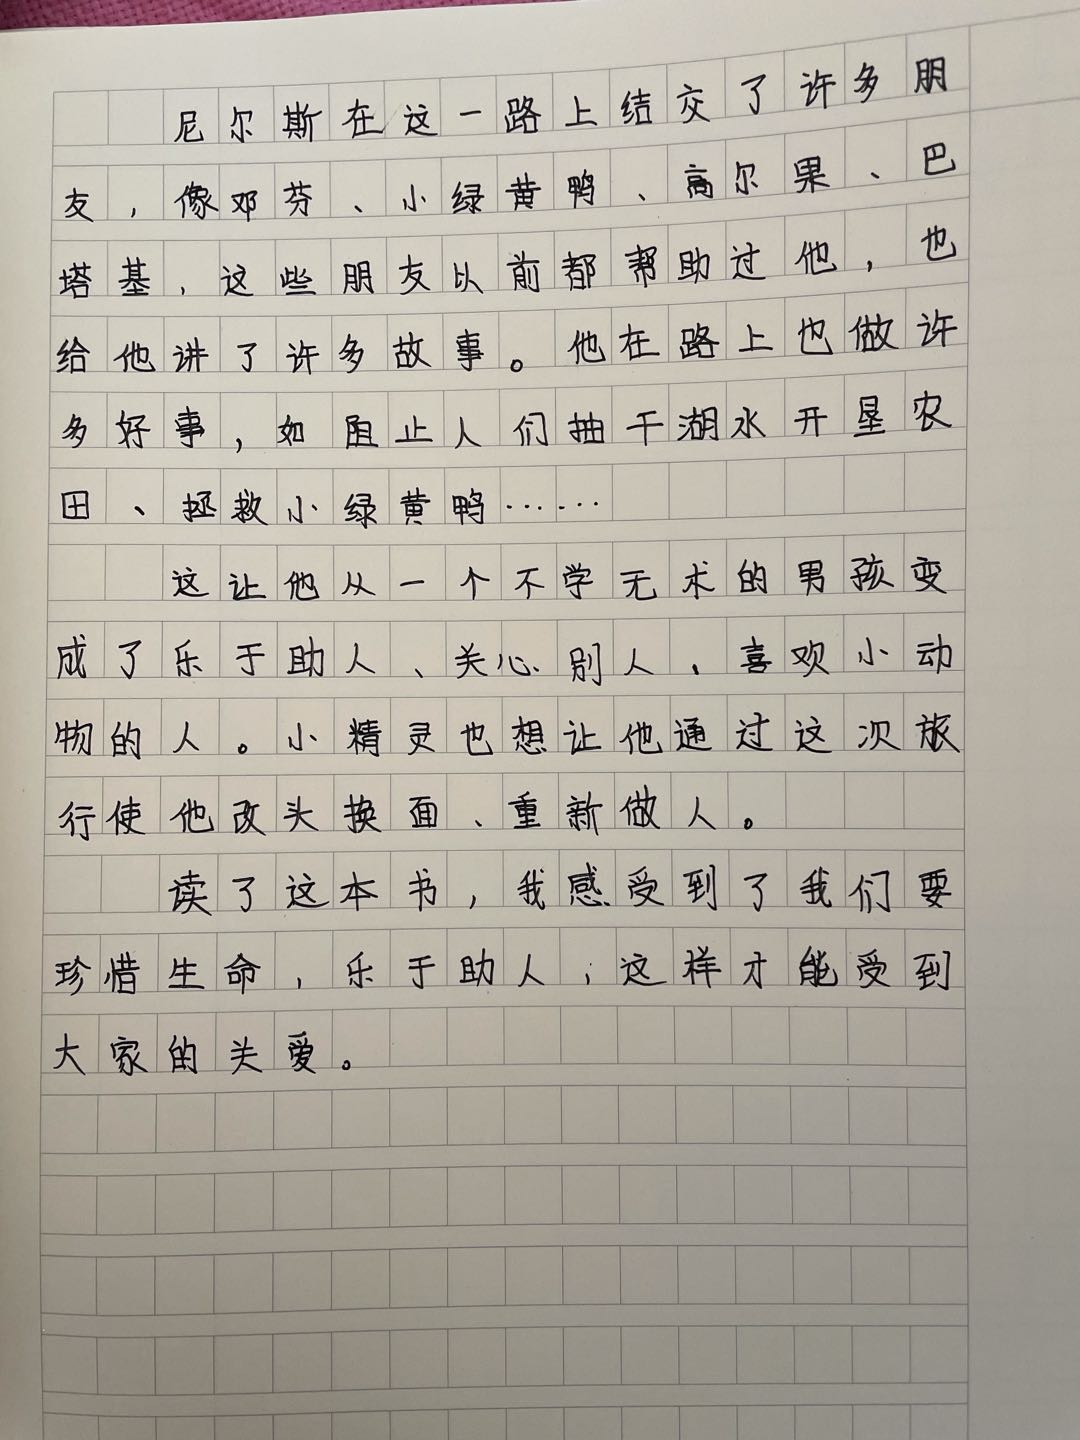 尼尔斯在这一路上结交了许多朋
友，像邓芬、小绿黄鸭、高尔果、巴
塔基，这些朋友以前都帮助过他，也
给他讲了许多故事。他在路上也做许
多好事，如阻止人们抽干湖水开垦农
田、拯救小绿黄鸭……
这让他从一个不学无术的男孩变
成了乐于助人、关心别人、喜欢小动
物的人。小精灵也想让他通过这次旅
行使他改头换面、重新做人。
读了这本书，我感受到了我们要
珍惜生命，乐于助人，这样才能受到
大家的关爱。